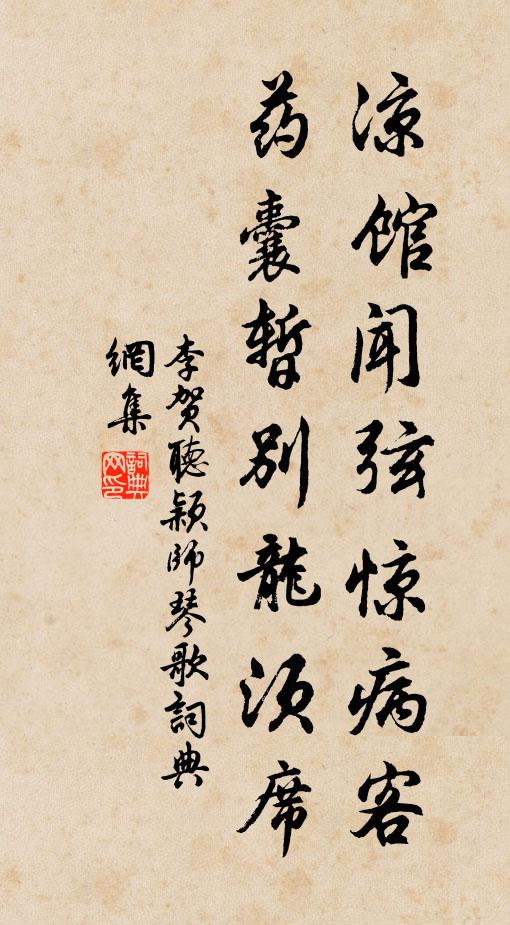 凉馆闻弦惊病客
药囊暂别龙须席
李贺聽颖师琴歌詞典
網集
詞典网印